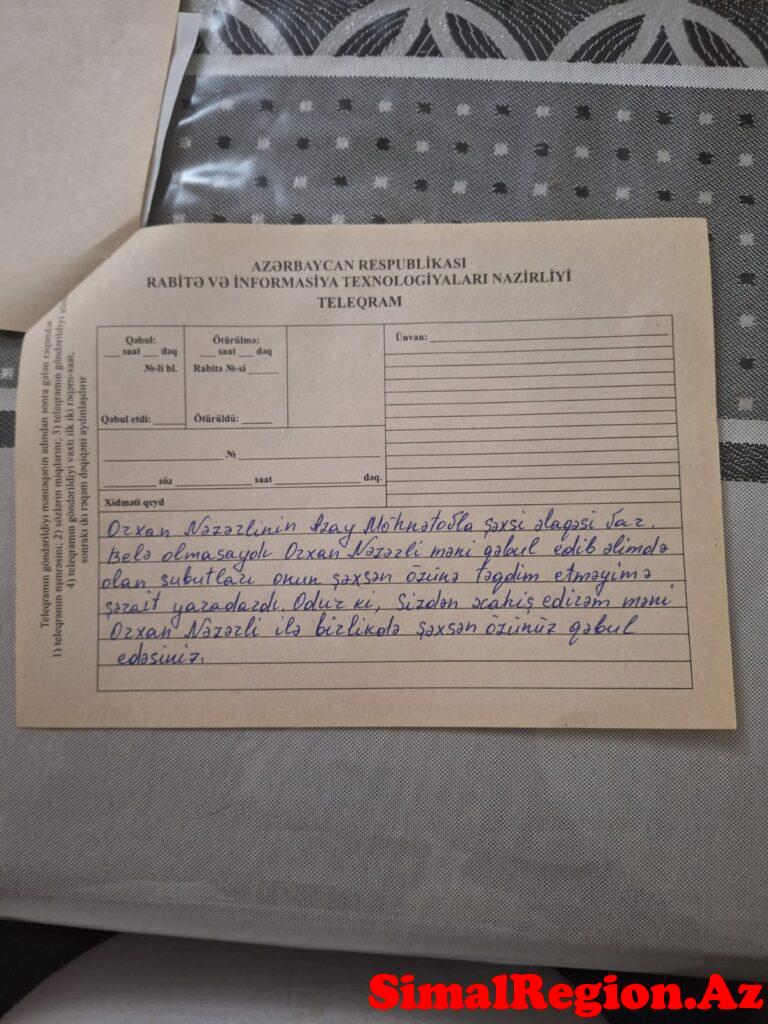 AZƏRBAYCAN RESPUBLİKASI
RABİTƏ VƏ İNFORMASİYA TEXNOLOGİYALARI NAZİRLİYİ
TELEQRAM
Qəbul:
___ saat ___ dəq
№-li bl.
Qəbul etdi: ______
Ötürülmə:
___ saat ___ dəq
Rabitə №-si ______
Ötürüldü: ______
Ünvan:
№
söz saat dəq.
Xidməti qeyd
Orxan Nəzərlinin Azay Möhnətoğla şəxsi əlaqəsi var.
Belə olmasaydı Orxan Nəzərli məni qəbul edib əlimdə
olan subutları onun şəxsən özünə təqdim etməyimə
şərait yaradardı. Odur ki, Sizdən xahiş edirəm məni
Orxan Nəzərli ilə birlikdə şəxsən özünüz qəbul
edəsiniz.
Teleqramın göndərildiyi məntəqənin adından sonra gələn rəqəmlər
1) teleqramın nömrəsini; 2) sözlərin miqdarını; 3) teleqramın göndərildiyi
4) teleqramın göndərildiyi vaxtı ilk iki rəqəm-saat,
sonrakı iki rəqəm dəqiqəni aydınlaşdırır
SimalRegion.Az